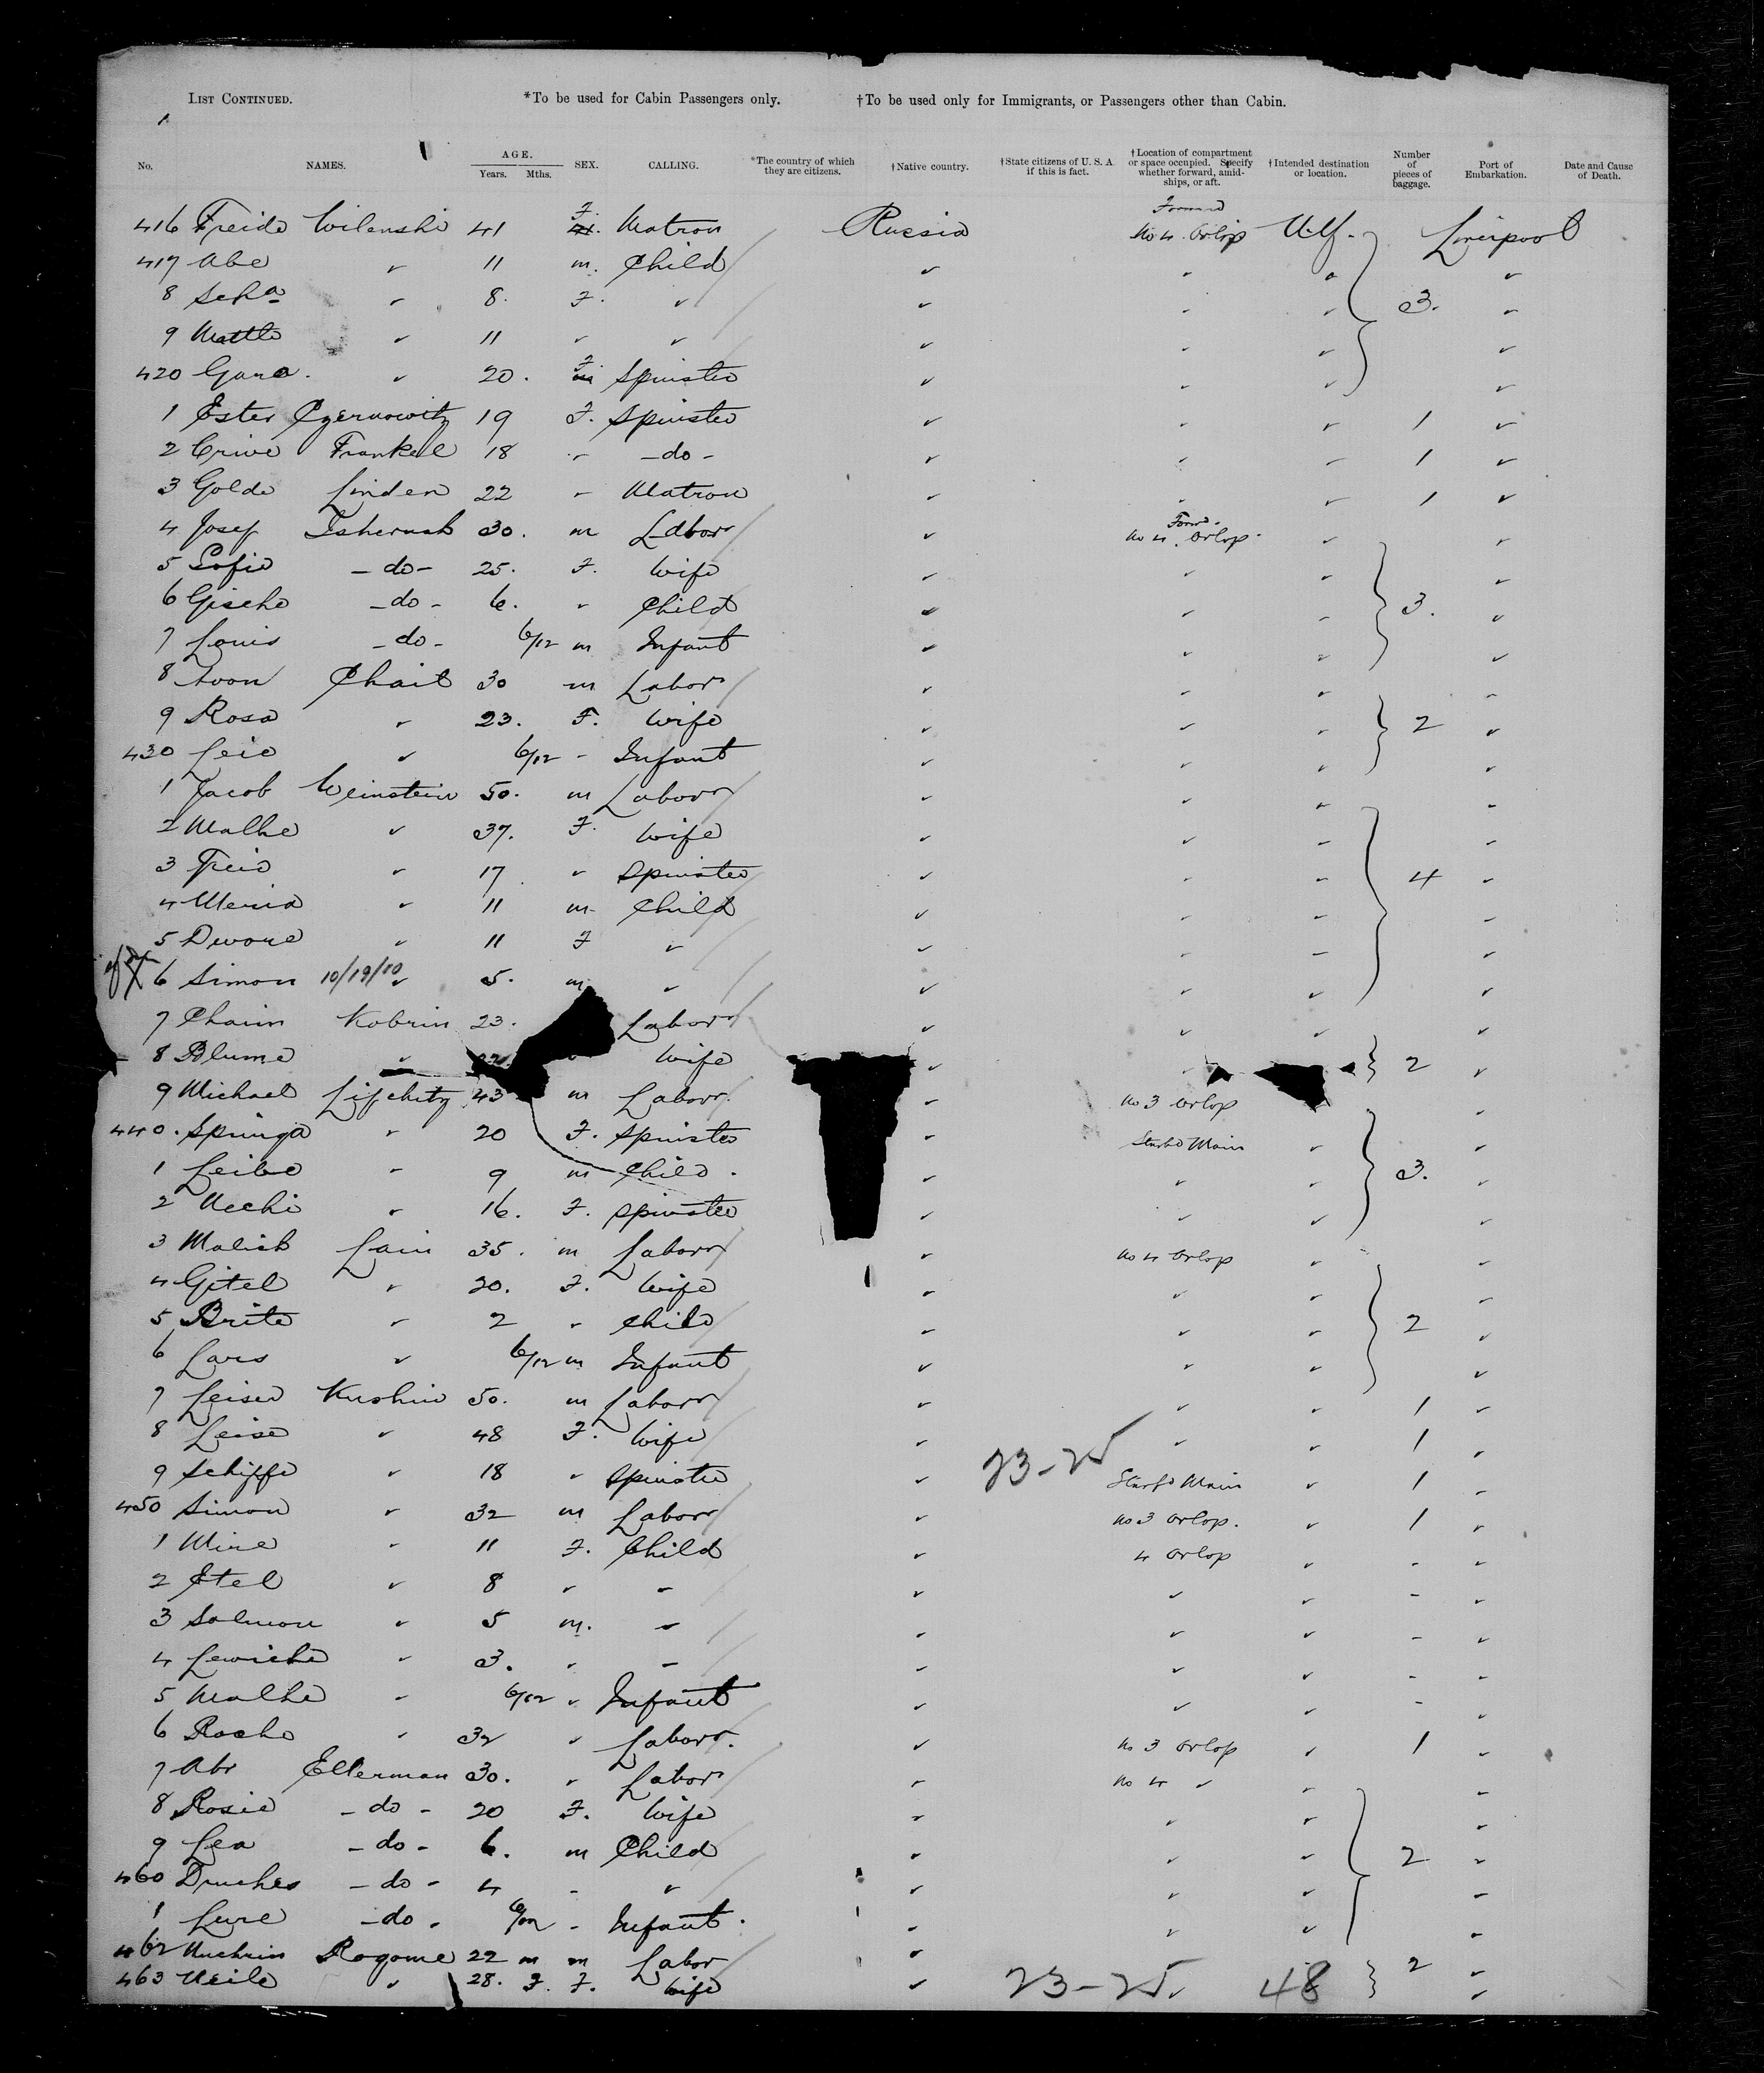 LIST CONTINUED. *To be used for Cabin Passengers only. †To be used only for Immigrants, or Passengers other than Cabin.
No. NAMES. AGE. Years. Mths. SEX. CALLING. *The country of which they are citizens. †Native country. †State citizens of U. S. A. if this is fact. †Location of compartment or space occupied. Specify whether forward, amidships, or aft. †Intended destination or location. Number of pieces of baggage. Port of Embarkation. Date and Cause of Death.
416 Freide Wilenski 41 F. Matron Russia Forward No 4. Orlop Liverpool
417 Abe " 11 m. Child " " " "
8 " 8. F. " " " " 3. "
9 " 11 " " " " " "
420 " 20. F Spinster " " " "
1 Ester Czernowitz 19 F. Spinster " " " 1 "
2 Frankel 18 " -do- " " " 1 "
3 Golde Linden 22 " Matron " " " 1 "
4 Josef 30. m Labor " Forwd. No 4. Orlop " "
5 Sofie -do- 25. F. Wife " " " "
6 Gische -do- 6. " Child " " " 3. "
7 Louis -do- 6/12 m Infant " " " "
8 Chait 30 m Labor " " " "
9 Rosa " 23. F. Wife " " " 2 "
430 Leie " 6/12 " Infant " " " "
1 Jacob Weinstein 50. m Labor " " " "
2 Malke " 37. F. Wife " " " "
3 " 17 " Spinster " " " 4 "
4 " 11 m Child " " " "
5 Dwore " 11 F " " " " "
6 Simon 10/19/10 " 5. m " " " " "
7 Chaim Kobrin 23. Labor " " " "
8 Blume " Wife " " 2 "
9 Michael Lifchitz 43 m Labor " No 3 Orlop "
440. " 20 F. Spinster " Starbd Main " "
1 Leibe " 9 m Child. " " " 3. "
2 " 16. F. Spinster " " " "
3 35. m Labor " No 4 Orlop " "
4 Gitel " 20. F. Wife " " " "
5 Brite " 2 " Child " " " 2 "
6 " 6/12 m Infant " " " "
7 Leiser 50. m Labor " " " 1 "
8 Leise " 48 F. Wife " " " 1 "
23-25
9 " 18 " Spinster " Starbd Main " 1 "
450 Simon " 32 m Labor " No 3 Orlop. " 1 "
1 " 11 F. Child " 4 Orlop " - "
2 Etel " 8 " " " " " - "
3 Salmon " 5 m. " " " " - "
4 " 3. " " " " " - "
5 Malke " 6/12 " Infant " " " - "
6 " 32 " Labor. " No 3 Orlop " 1 "
7 Abr Ellerman 30. " Labor " No 4 " " "
8 Rosie -do- 20 F. Wife " " " "
9 Lea -do- 6. m Child " " " 2 "
460 -do- 4 " " " " " "
1 -do- 6/12 " Infant. " " " "
462 22 m m Labor " 2 "
463 " 28. F. F. Wife " 23-25. 48 "